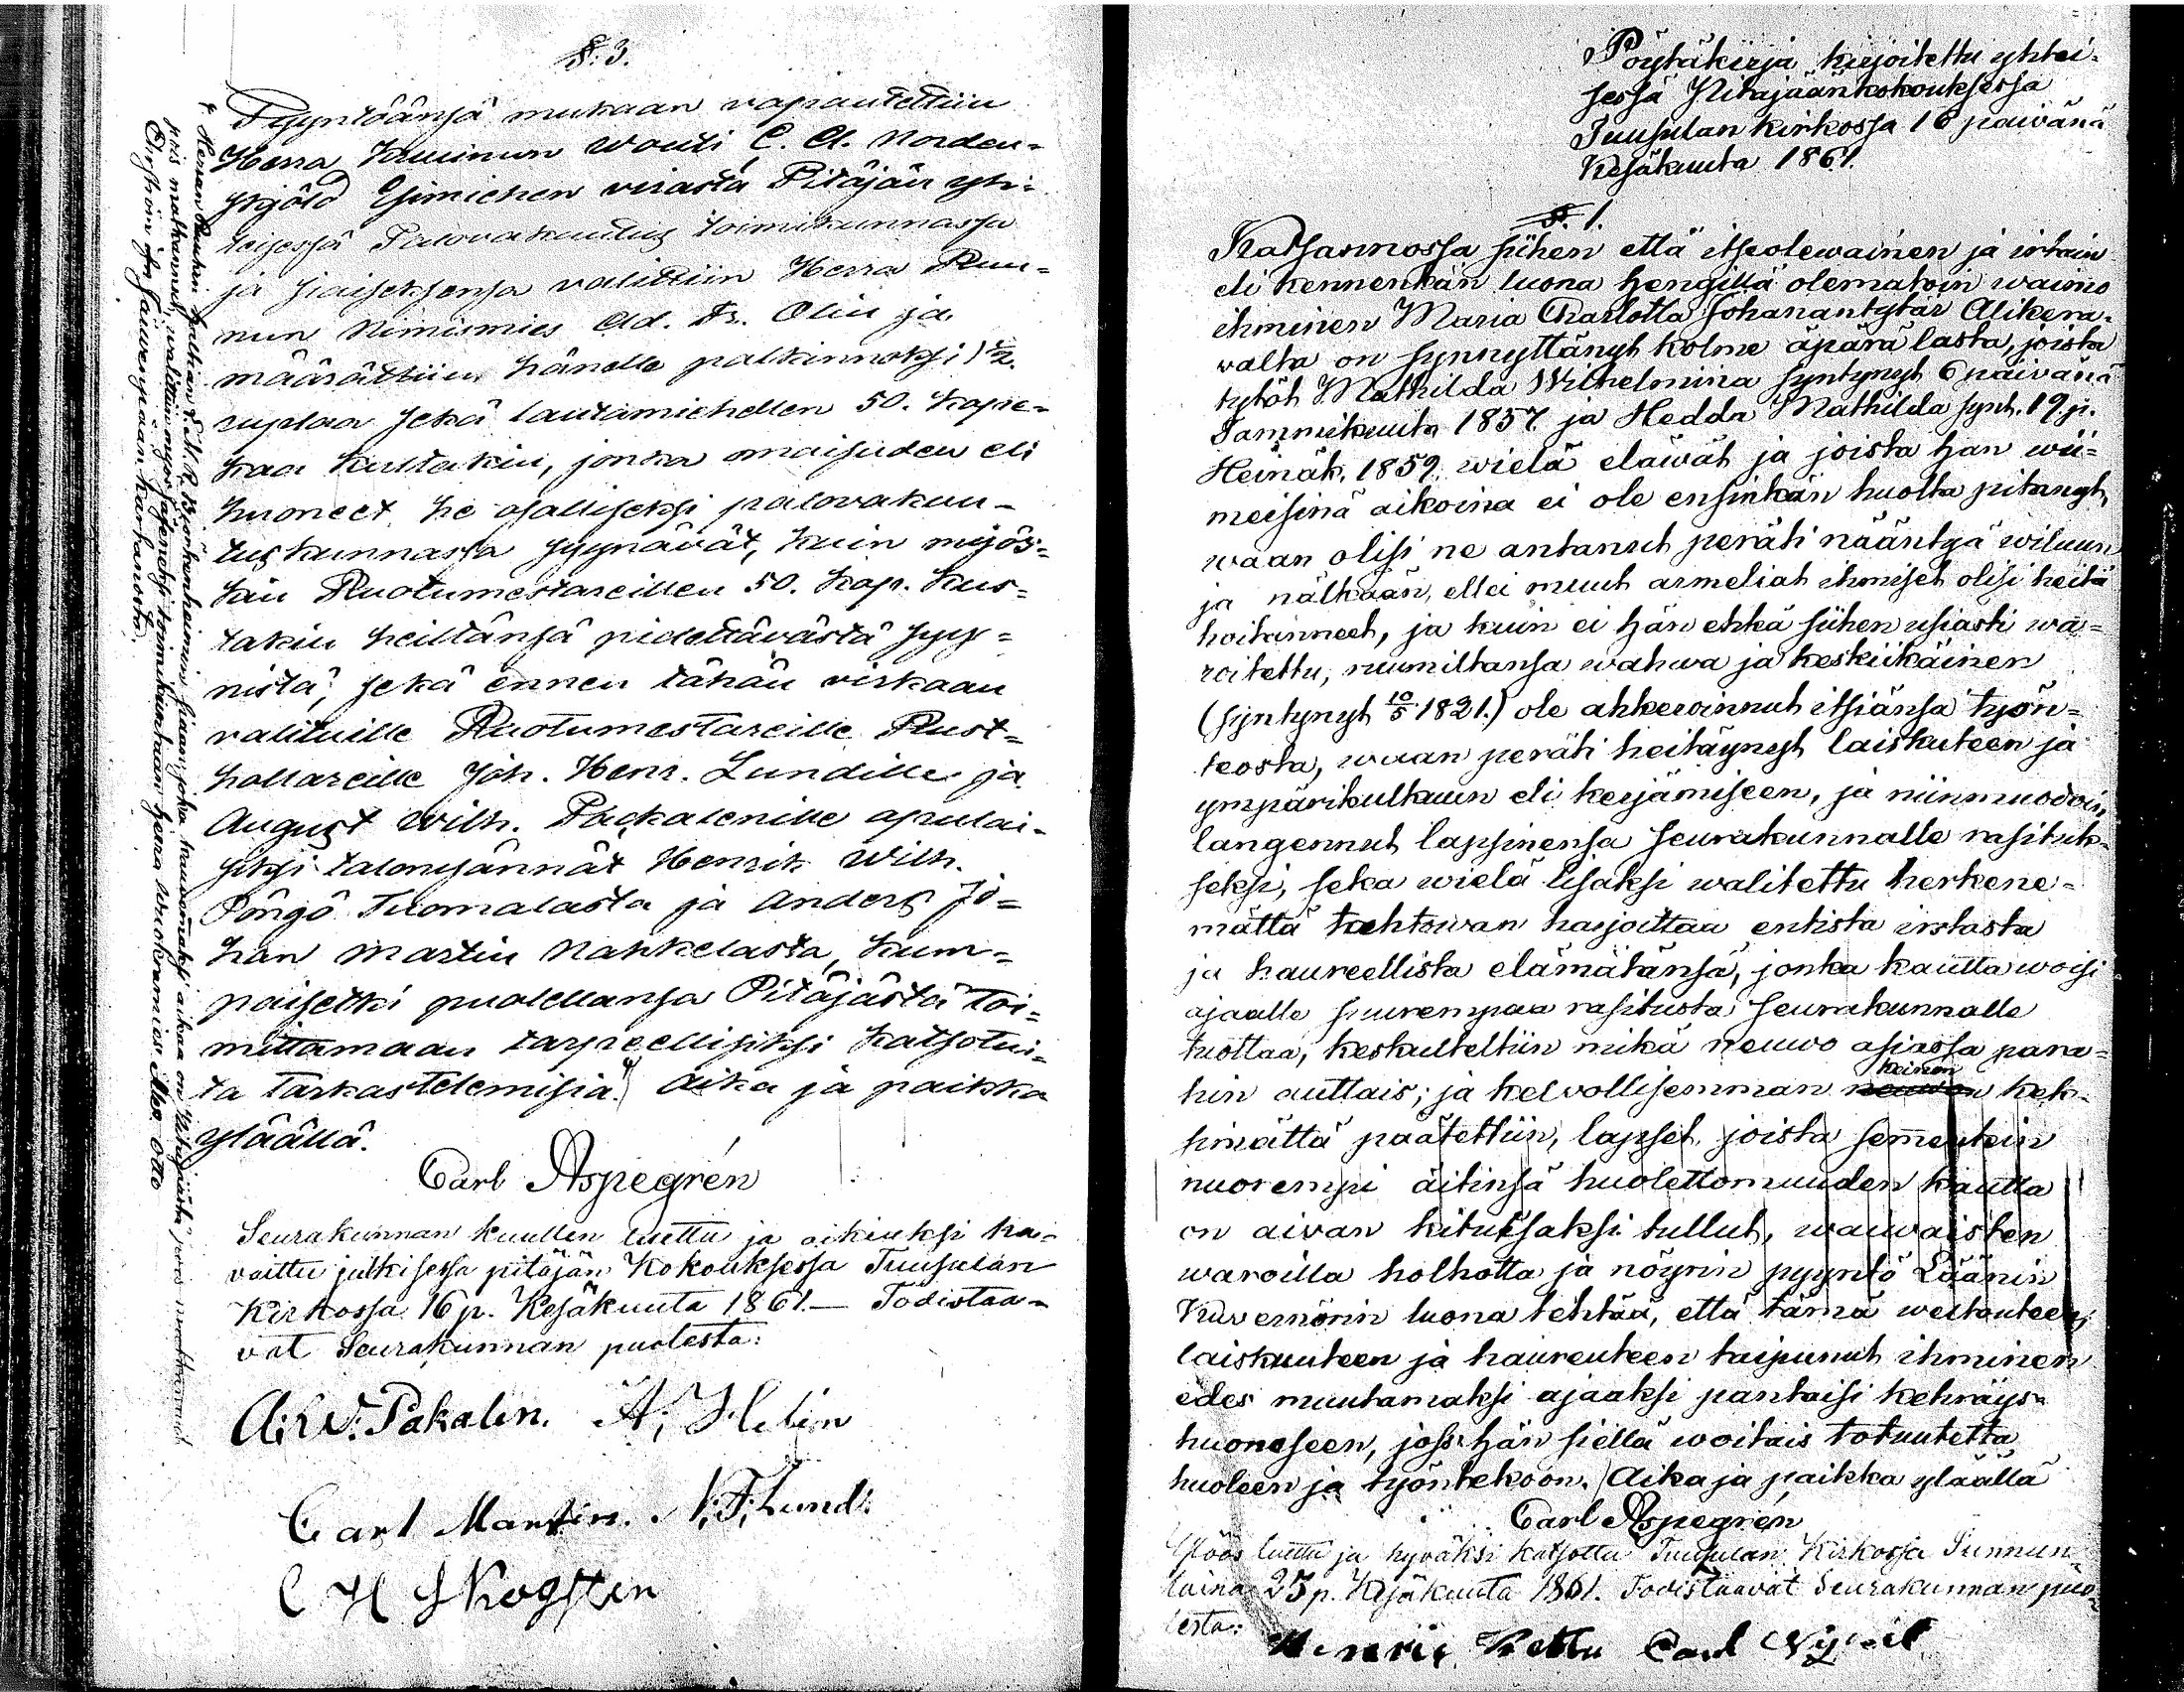 §. 3.
Pyyntöänsä mukaan vapautettiin
Herra Kruunun Wouti C. A. Norden=
skjöld Esimiehen virasta Pitäjän yh=
teisessä Palovakuutus toimikunnassa
ja siaiseksensa valittiin Herra Ruu=
nun Nimismies Ad. Fr. Olin ja
määrättiin hänelle palkinnoksi 1 1/2.
ruplaa sekä lautamiehellen 50. kope=
kaa kultakin, jonka omaisuden eli
huoneet he osalliseksi palovakuu-
tuskunnassa syynävät, kuin myös=
kin Ruotumestareillen 50. kop. kus=
takin heiltänsä pidettävästä syy=
nistä, sekä ennen tähän virkaan
valituille Ruotumestareille Rust=
hollareille Joh. Henr. Lundille ja
August Wilh. Packalenille apulai-
siksi talonisännät Henrik Wilh.
Pöngö Tuomalasta ja Anders Jo=
han Martin Nahkelasta, kum=
paisetki puolellansa Pitäjästä toi=
mittamaan tarpeellisiksi katsotui=
ta tarkastelemisia. Aika ja paikka
ylläällä.
Carl Aspegrén
Seurakunnan kuullen luettu ja oikiuksi ha=
vaittu julkisessa pitäjän Kokouksessa Tuusulan
Kirkossa 16 p. Kesäkuuta 1861.— Todistaa=
vat Seurakunnan puolesta:
A: W: Pakalen. A; Helin
Carl Martin. N; F; Lund:
C H Skogsten
siaan joka kauemaksi aikaa on Pitäjästä pois
pois matkannut, walittiin myös jäseneksi toimikuntaan Herra Wuokramies Mag. Otto
Järwenpään kartanosta.
Pöytäkirja kirjoitettu yhtei=
sessä Pitäjäänkokouksessa
Tuusulan kirkossa 16 päivänä
Kesäkuuta 1861.
§. 1.
Katsannossa siihen että itseolewainen ja irtain
eli kennenkän luona hengillä olematoin waimo
ihminen Maria Charlotta Johanantytär Alikera=
valta on synnyttänyt kolme äpärä lasta, joista
tytöt Mathilda Wilhelmina syntynyt 6 päivänä
Tammikuuta 1857 ja Hedda Mathilda synt. 19. p.
Heinäk. 1859. wielä eläwät ja joista hän wii=
meisinä aikoina ei ole ensinkän huolta pitänyt,
waan olisi ne antanut peräti nääntyä wiluun
ja nälkään, ellei muut armeliat ihmiset olisi heitä
hoitanneet, ja kuin ei hän ehkä siihen usiasti wa=
roitettu, ruumiltansa wahwa ja keskiikäinen
(syntynyt 10/5 1821.) ole ahkeroinnut itsiänsä työn=
teosta, waan peräti heitäynyt laiskuteen ja
ympärikulkuun eli kerjämiseen, ja niinmuodoin
langennut lapsinensa seurakunnalle rasituk=
seksi, seka wielä lisäksi walitettu herkene=
mättä tahtowan harjoittaa entista irstasta
ja haureellista elämätänsä, jonka kautta woisi
ajaalle suurempaa rasitusta seurakunnalle
tuottaa, keskulteltiin mikä neuwo asiassa para=
hin auttais; ja kelvollisemman keinon kek=
simättä päätettiin, lapset, joista semenkin
nuorempi äitinsä huolettomuuden kautta
on aivan kitutsaksi tullut, waiwaisten
waroilla holhotta ja nöyrin pyyntö Läänin
Kuvernörin luona tehtää, että tämä
laiskuuteen ja haureuteen taipunut ihminen
edes muutamaksi ajaaksi pantaisi kehräys=
huoneseen, joss hän siellä woitais totuutetta
huoleen ja työntekoon. Aika ja paikka ylläällä
Carl Aspegrén
Ylöös luettu ja hyväksi katsottu Tuusulan Kirkossa Sunnun=
taina 23 p. Kesäkuuta 1861. Todistaavat Seurakunnan puo=
lesta:
Henrik Kettu Carl